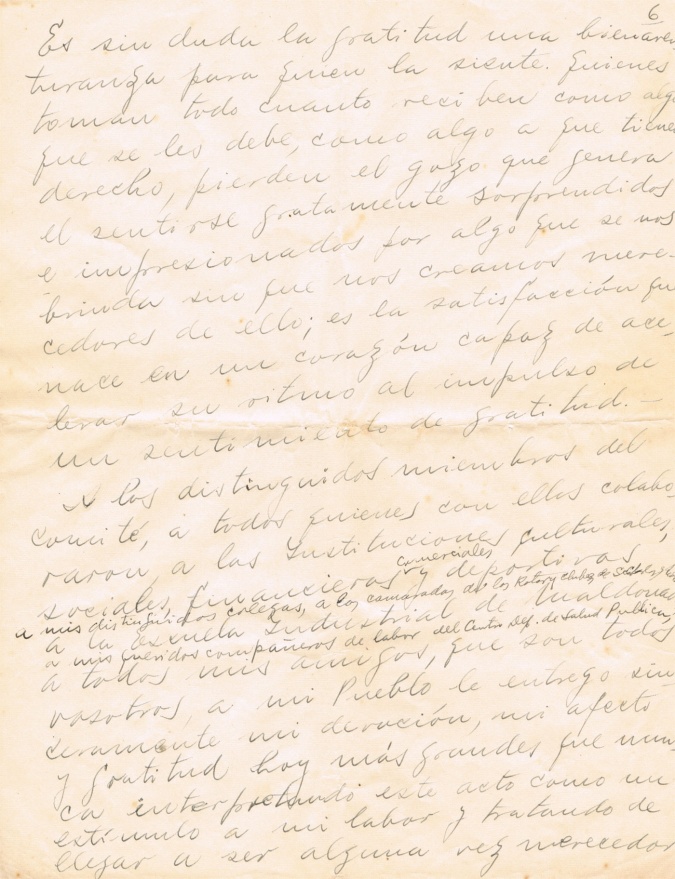 6
Es sin duda la gratitud una bienaven
turanza para quien la siente. Quienes
toman todo cuanto reciben como algo
que se les debe, como algo a que tienen
derecho, pierden el gozo que genera
el sentirse gratamente sorprendidos
e impresionados por algo que se nos
brinda sin que nos creamos mere-
cedores de ello; es la satisfacción qu
nace en un corazón capaz de ace-
lerar su ritmo al impulso de
un sentimiento de gratitud.-
A los distinguidos miembros del
comité, a todos quienes con ellos colabo-
raron, a las Instituciones culturales,
comerciales
sociales, financieras y deportivas
a mis distinguidos colegas, a los camaradas de los Rotary clubes de
a la Escuela Industrial de Maldonado
a mis queridos compañeros de labor del Centro Dep. de Salud Publica,
a todos mis amigos, que son todos
vosotros, a mi Pueblo le entrego sin-
ceramente mi devoción, mi afecto
y gratitud hoy más grandes que nun-
ca interpretando este acto como un
estímulo a mi labor y tratando de
llegar a ser alguna vez merecedor